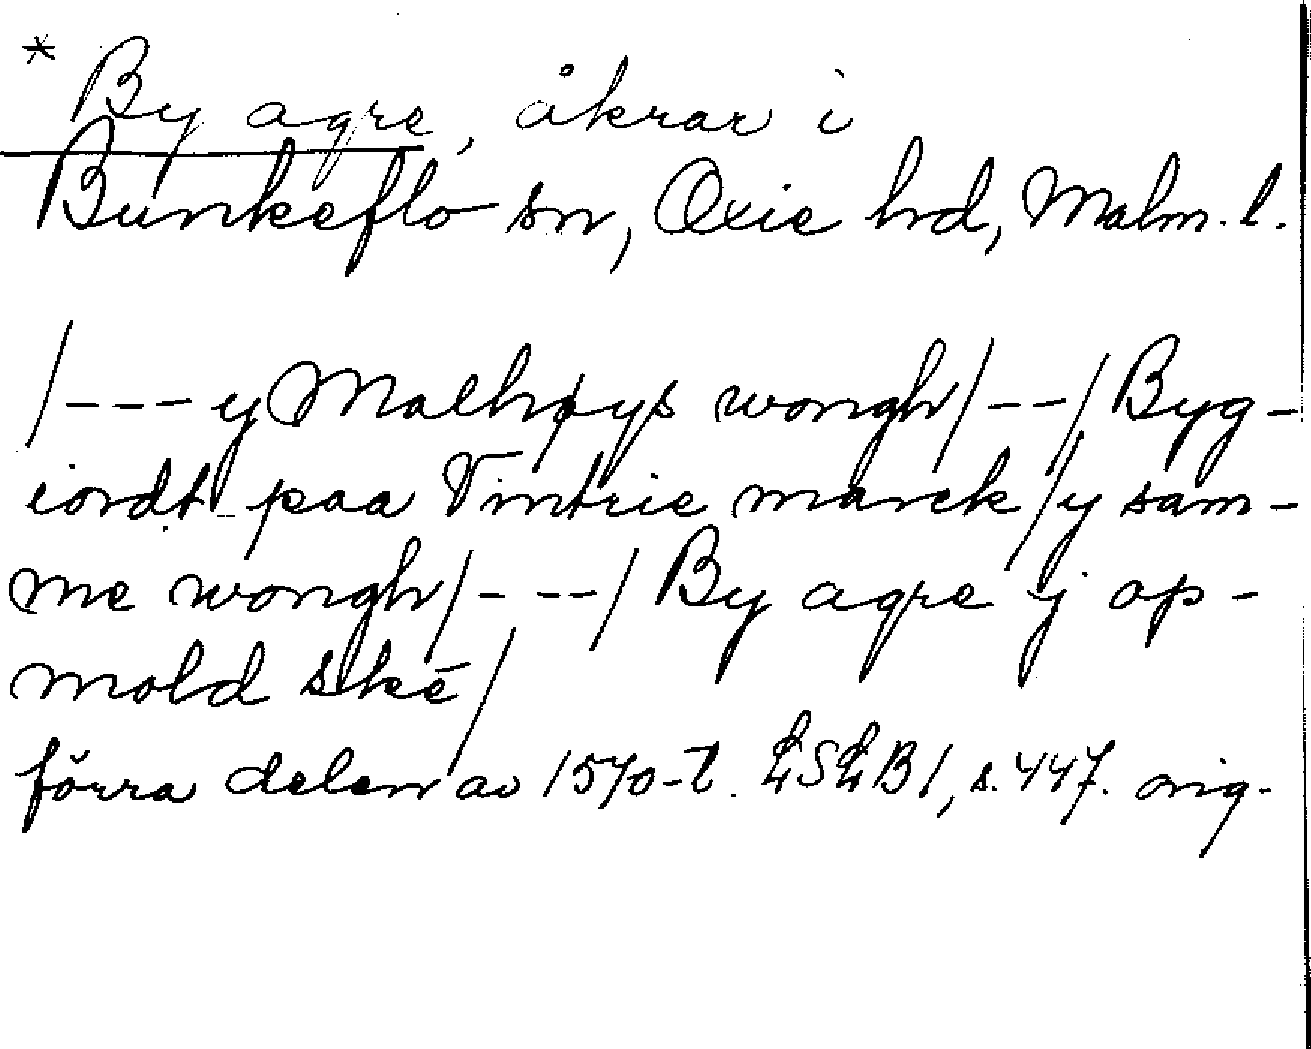 * By agre, åkrar i
Bunkeflo sn, Oxie hrd, Malm. l.
/---y Malhøys wongh/--/Byg-
iordt paa Vintrie marck/y sam-
me wongh/---/By agre y op-
mold ske/
förra delen av 1570-t. LSLB1, s. 447. orig.